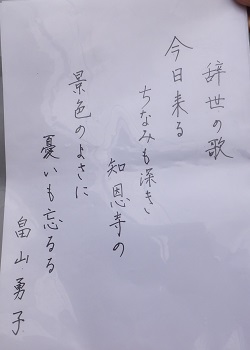 辞世の歌
今日来る
ちなみも深き
知恩寺の
景色のよさに
憂いも忘るる
畠山勇子